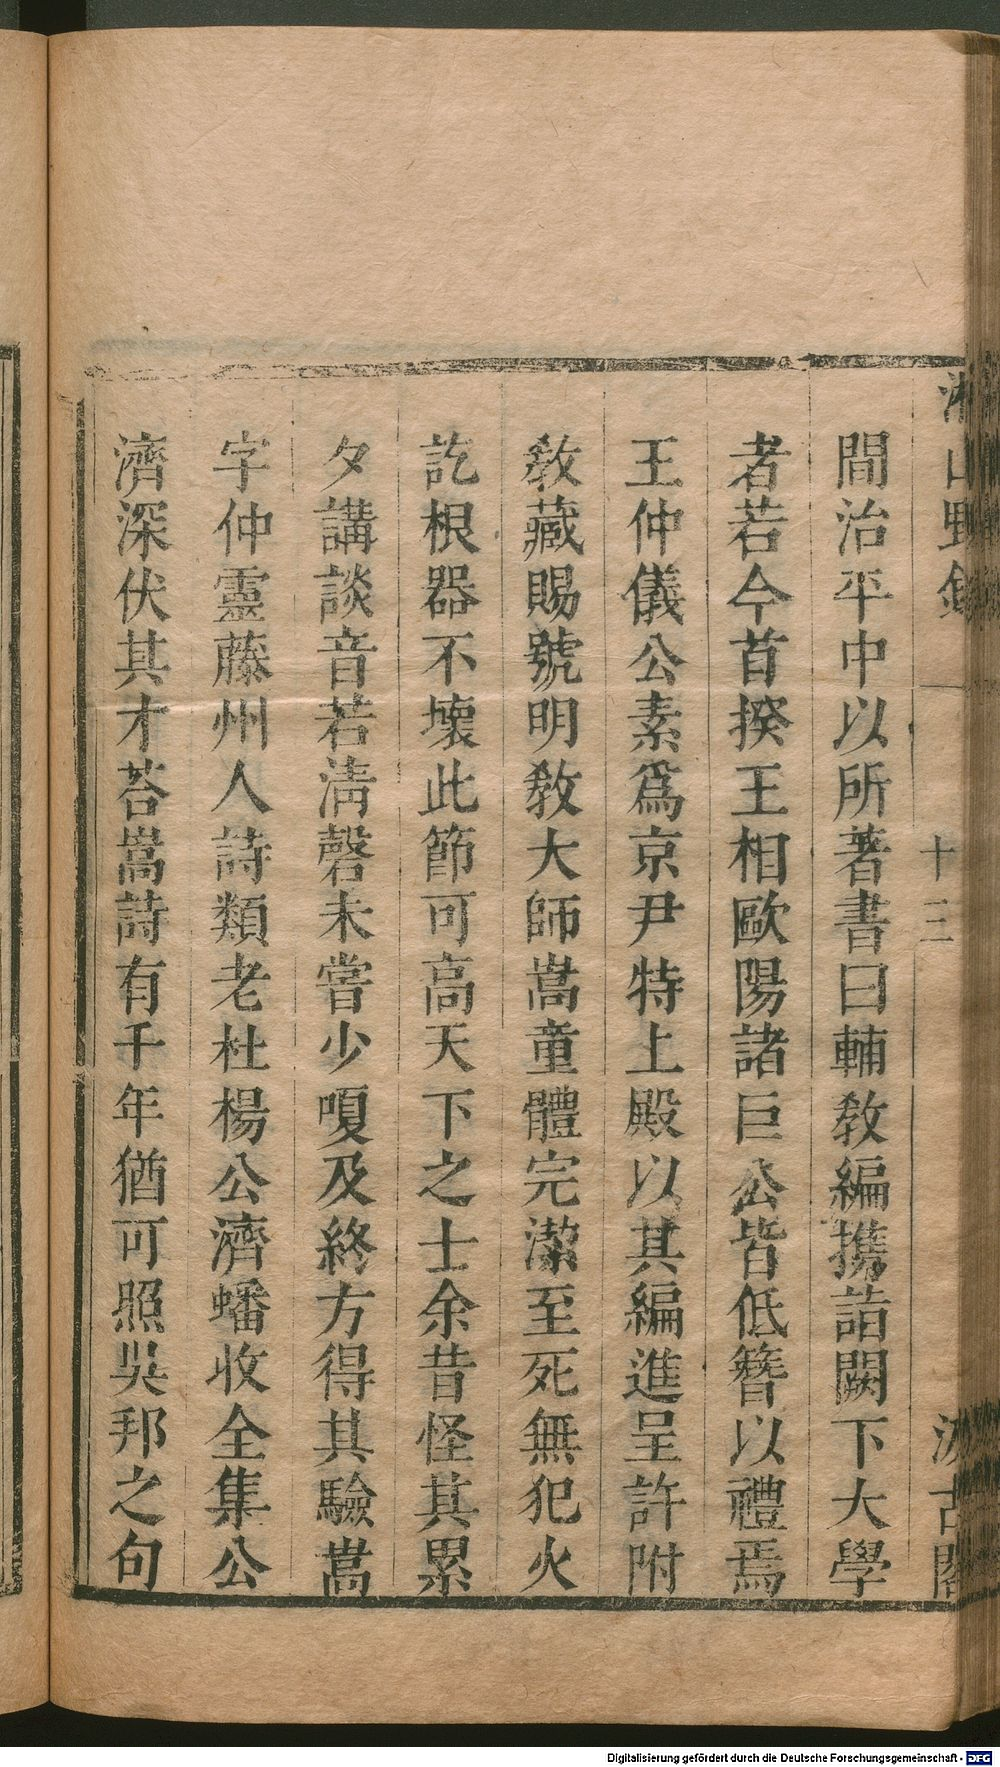 湘山野錄
十三
汲古閣
間治平中以所著書曰輔教編攜詣闕下大學
者若今首揆王相歐陽諸巨公皆低簪以禮焉
王仲儀公素爲京尹特上殿以其編進呈許附
教藏賜號明教大師嵩童體完潔至死無犯火
訖根器不壞此節可高天下之士余昔怪其累
夕講談音若淸磬未嘗少嗄及終方得其驗嵩
字仲靈藤州人詩類老杜楊公濟蟠收全集公
濟深伏其才荅嵩詩有千年猶可照吳邦之句
Digitalisierung gefördert durch die Deutsche Forschungsgemeinschaft - DFG